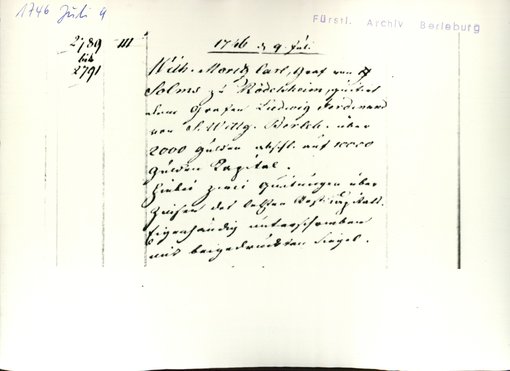 1746 Juli 9
Fürstl. Archiv Berleburg
2789 III
bis
2791
1746 d. 9. Juli
Wilh. Moritz Carl, Graf von
Solms zu Rödelheim, quitirt
dem Grafen Ludwig Ferdinand
von S. Wittg. Berleb. über
2000 Gulden abschl. auf 10000
Gulden Kapital.
Hiebei zwei Quitungen über
Zinsen des letzten Rest
Eigenhändig unterschrieben
mit beigedrücktem Siegel.